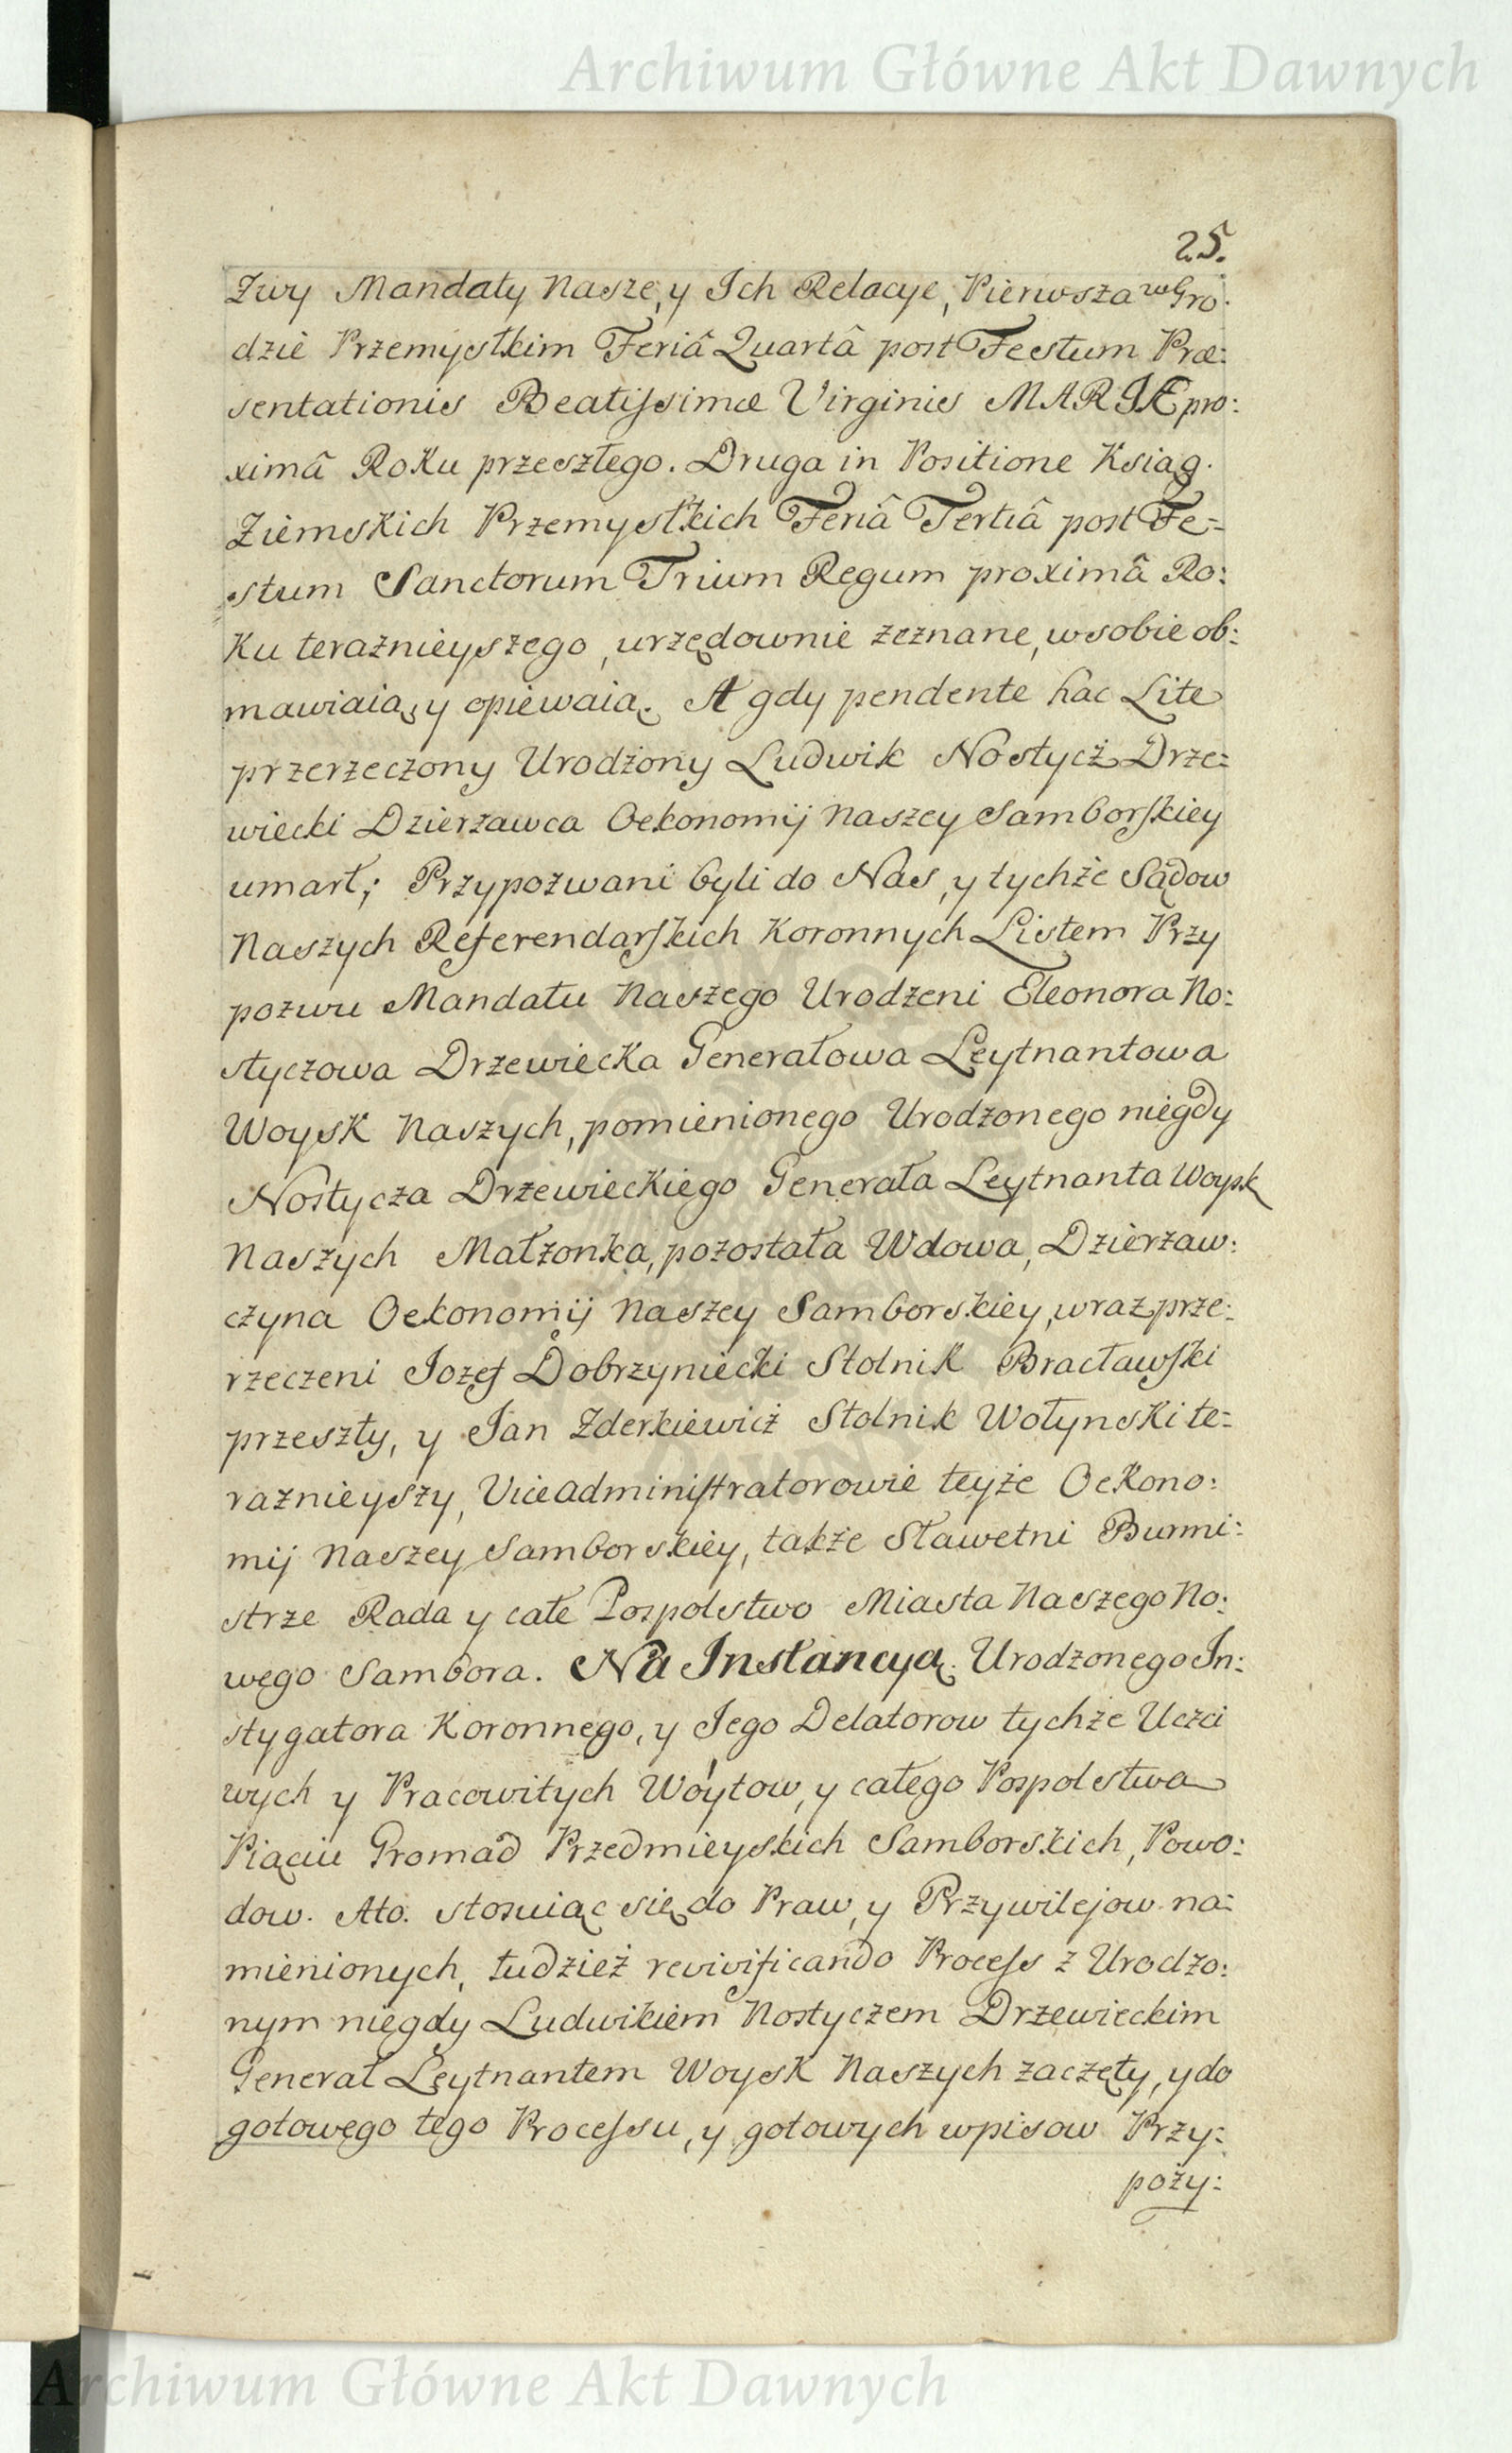 Archiwum Główne Akt Dawnych
25.
Zwy Mandaty Nasze, y Ich Relacye, Pierwsza w Gro:
dzie Przemyslkim Feriâ Quartâ post Festum Præ:
sentationis Beatissimæ Virginis MARIÆ pro:
ximâ Roku przeszłego. Druga in Positione Ksiąg.
Ziemskich Przemyslkich Feriâ Tertiâ post Fe=
stum Sanctorum Trium Regum proximâ Ro:
ku teraznieyszego, urzędownie zeznane, w sobie ob:
mawiaią, y opiewaią. A gdy pendente hac Lite
przerzeczony Urodzony Ludwik Nostycz Drze=
wiecki Dzierzawca Oekonomij Naszey Samborskiey
umarł; Przypozwani byli do Nas, y tychże Sądow
Naszych Referendarskich Koronnych Listem Przy
pozwu Mandatu Naszego Urodzeni Eleonora No:
styczowa Drzewiecka Generałowa Leytnantowa
Woysk Naszych, pomienionego Urodzonego niegdy
Nostycza Drzewieckiego Generała Leytnanta Woysk
Naszych Małzonka, pozostała Wdowa, Dzierzaw:
czyna Oekonomij Naszey Samborskiey, wraz prze:
rzeczeni Jozef Dobrzyniecki Stolnik Bracławski
przeszły, y Jan Zderkiewicz Stolnik Wołynski te=
raznieyszy, Viceadministratorowie teyże Oekono:
mij Naszey Samborskiey, także Sławetni Burmi:
strze Rada y całe Pospolstwo Miasta Naszego No:
wego Sambora. Na Instancyą. Urodzonego In:
stygatora Koronnego, y Jego Delatorow tychże Uczci
wych y Pracowitych Wóytow, y całego Pospolstwa
Piąciu Gromad Przedmieyskich Samborskich, Powo:
dow. Ato. stosuiąc się do Praw, y Przywilejow na=
mienionych, tudzież revivificando Process z Urodzo:
nym niegdy Ludwikiem Nostyczem Drzewieckim
Generał Leytnantem Woysk Naszych zaczęty, y do
gotowego tego Processu, y gotowych wpisow Przy=
pozy:
Archiwum Główne Akt Dawnych